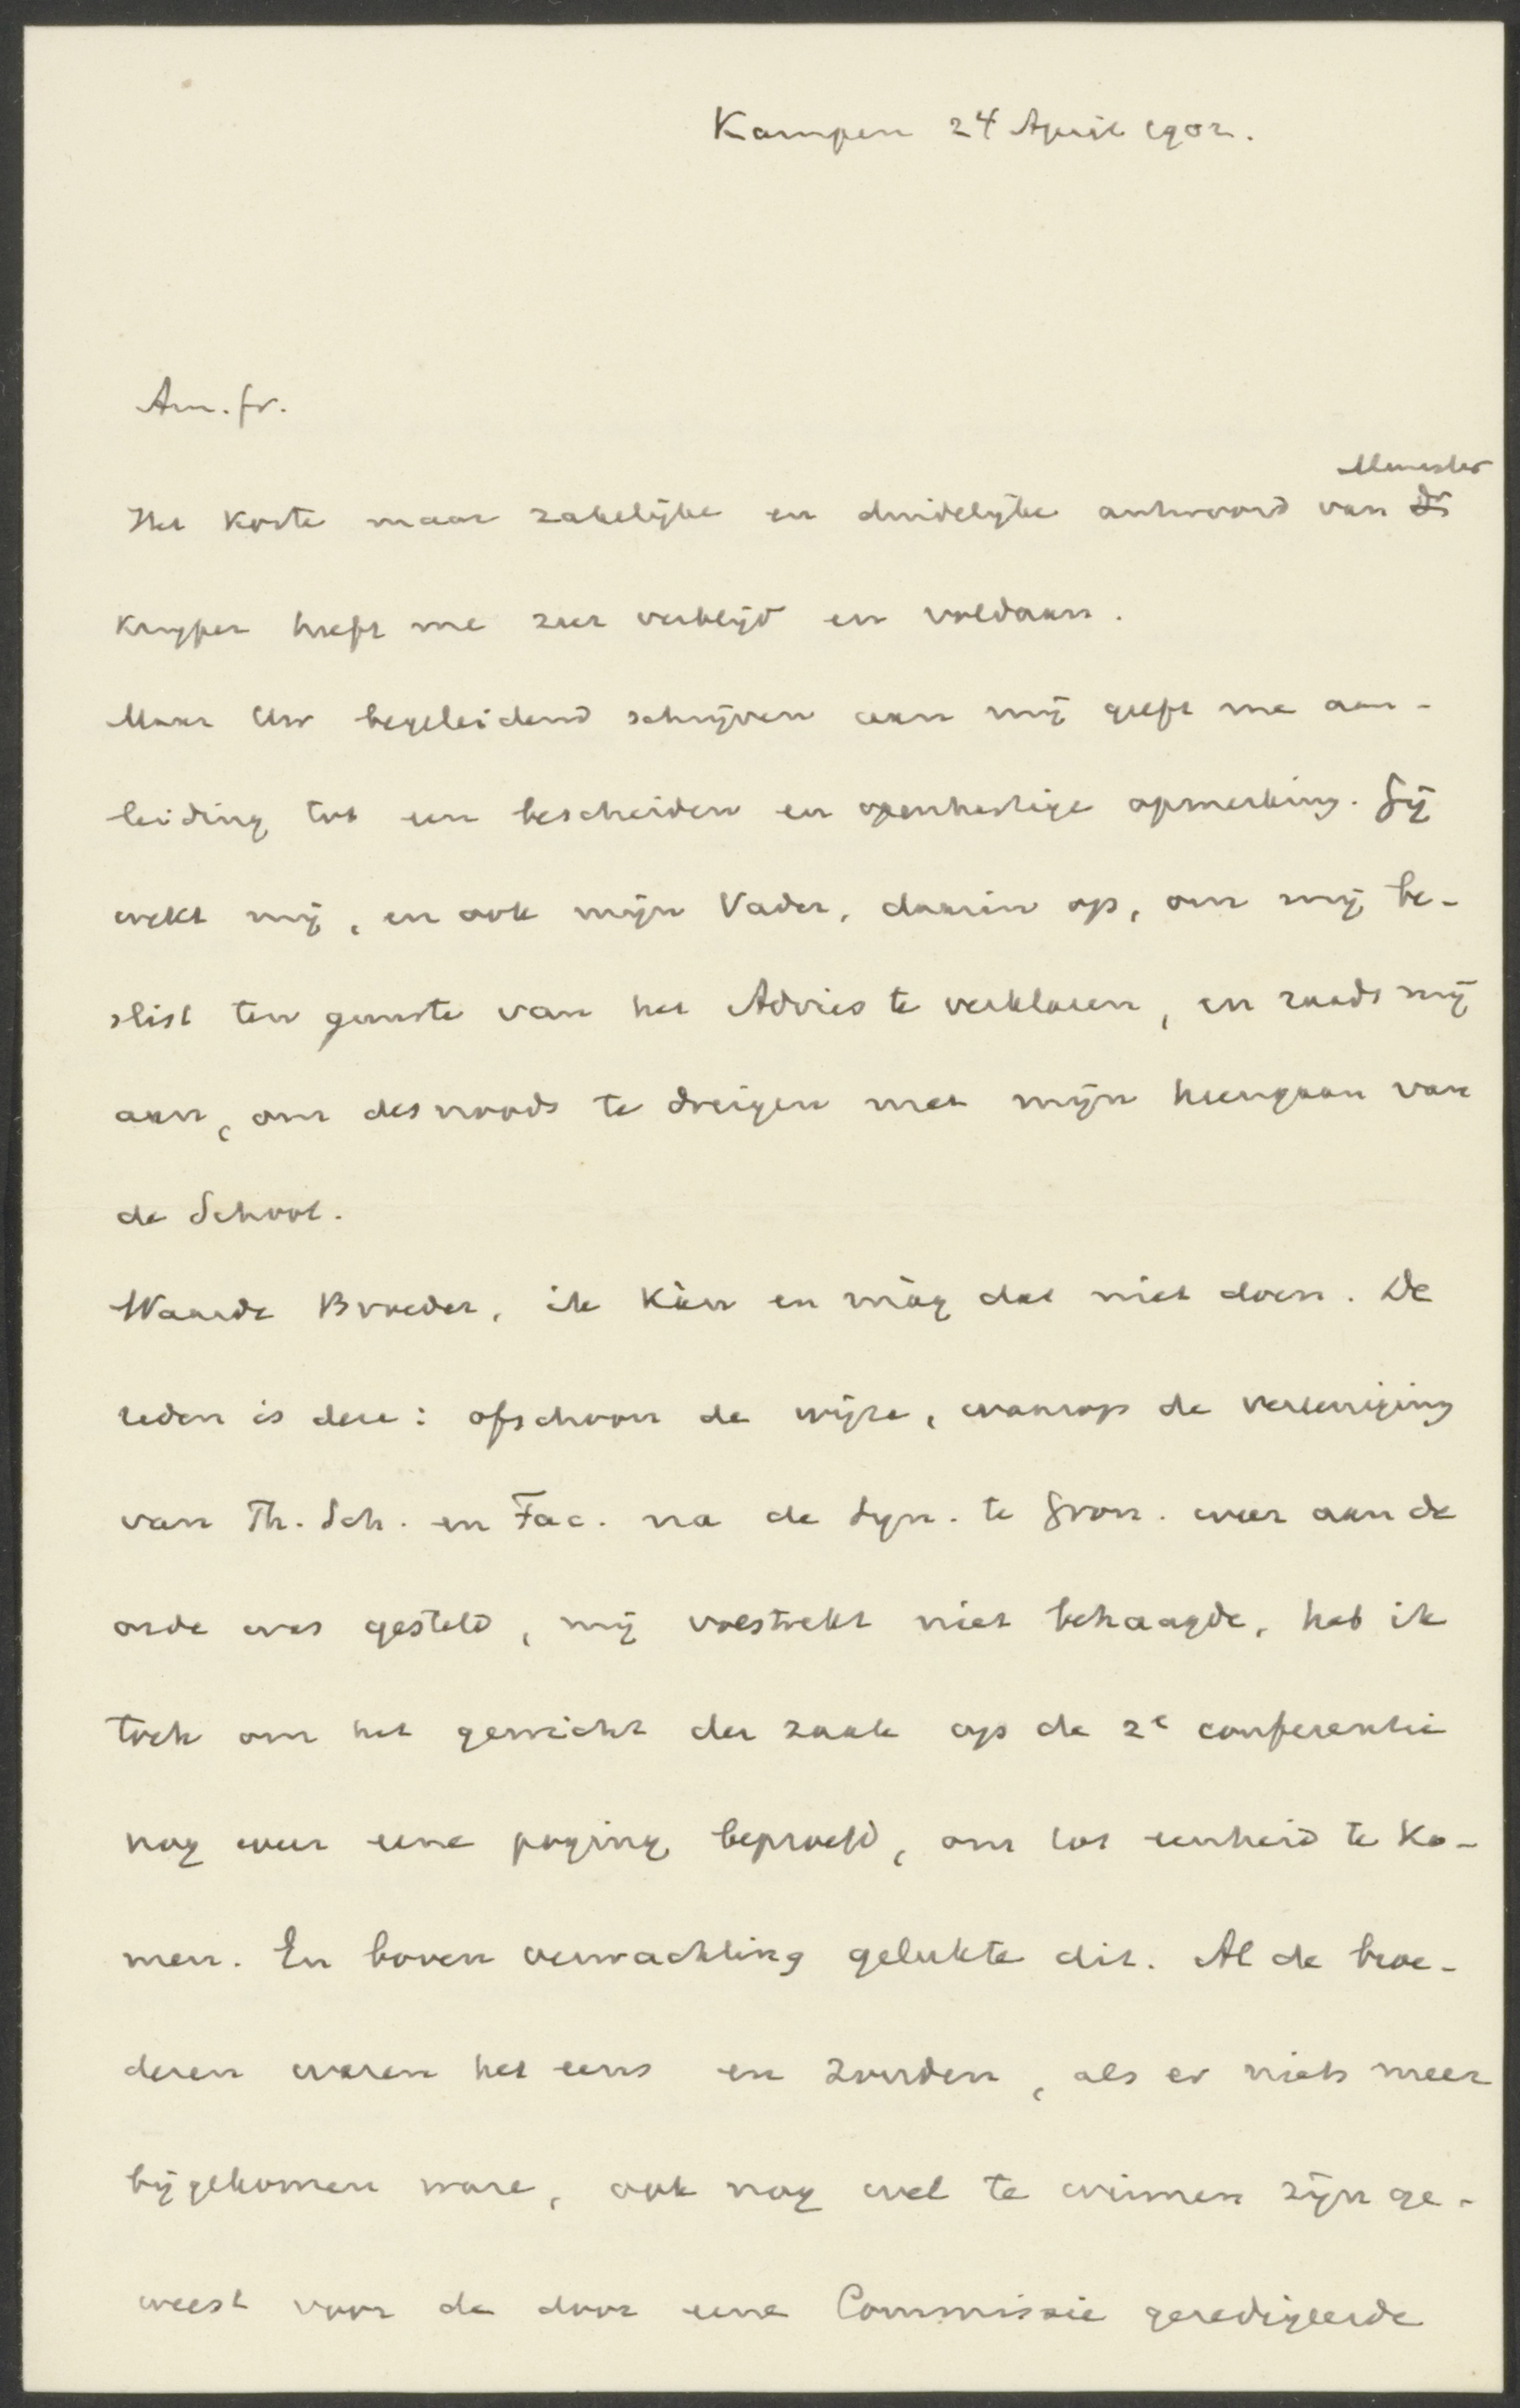 Kampen 24 April 1902.
Am. fr.
Minister
Het korte maar zakelijke en duidelijke antwoord van Dr
Kuyper heeft me zeer verblijd en voldaan.
Maar Uw begeleidend schrijven aan mij geeft me aan-
leiding tot een bescheiden en openhartige opmerking. Gij
wekt mij, en ook mijn Vader, daarin op, om mij be-
slist ten gunste van het Advies te verklaren, en raadt mij
aan, om desnoods te dreigen met mijn heengaan van
de School.
Waarde Broeder, ik kàn en màg dat niet doen. De
reden is deze: ofschoon de wijze, waarop de vereeniging
van Th. Sch. en Fac. na de Syn. te Gron. weer aan de
orde was gesteld, mij volstrekt niet behaagde, heb ik
toch om het gewicht der zaak op de 2e conferentie
nog weer eene poging beproefd, om tot eenheid te ko-
men. En boven verwachting gelukte dit. Al de broe-
deren waren het eens en zouden, als er niets meer
bijgekomen ware, ook nog wel te winnen zijn ge-
weest voor de door eene Commissie geredigeerde